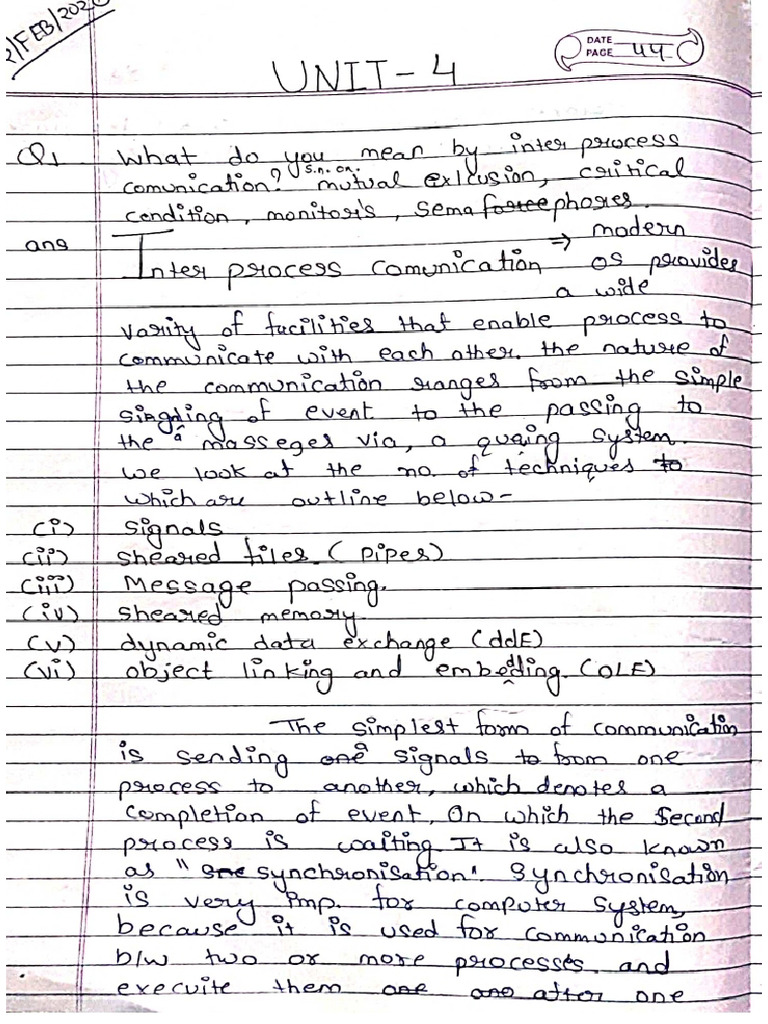 /FEB/202
DATE
PAGE 44
UNIT-4
Q1 What do you mean by inter process
comunication? s.n. on. mutual exlcusion, critical
condition, monitoris, Semaforeephores.
ans Inter process comunication ⇒ modern
os provides
a wide
varity of facilities that enable process to
communicate with each other. the nature of
the communication ranges from the simple
of event to the passing to
the a masseges via, a quging system.
we look at the no. of techniques to
which are outline below-
(i) signals
(ii) sheared files. (pipes)
(iii) Message passing.
(iv) sheared memory
(v) dynamic data exchange (ddE)
(vi) object linking and embedding. (OLE)
The simplest form of communication
is sending one a signals to from one
process to another, which denotes a
completion of event, On which the Second
process is waiting. It is also known
as "sne synchronisation". Synchronisation
is very Imp. for computer System,
because it is used for communication
b/w two or more processes. and
execuite them one one after one